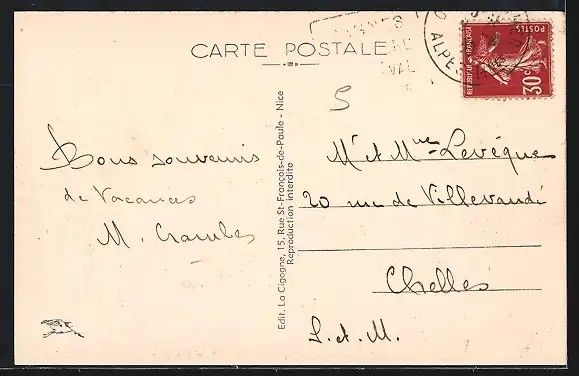 CARTE POSTALE
ALPES
REPUBLIQUE FRANÇAISE
POSTES
30c
5
Bons souvenirs
de Vacances
M.
Edit. La Cigogne, 15, Rue St-François-de-Paule - Nice
Reproduction interdite
Mr et Mme Levêque
20 rue de Villevaudé
Chelles
S. et M.